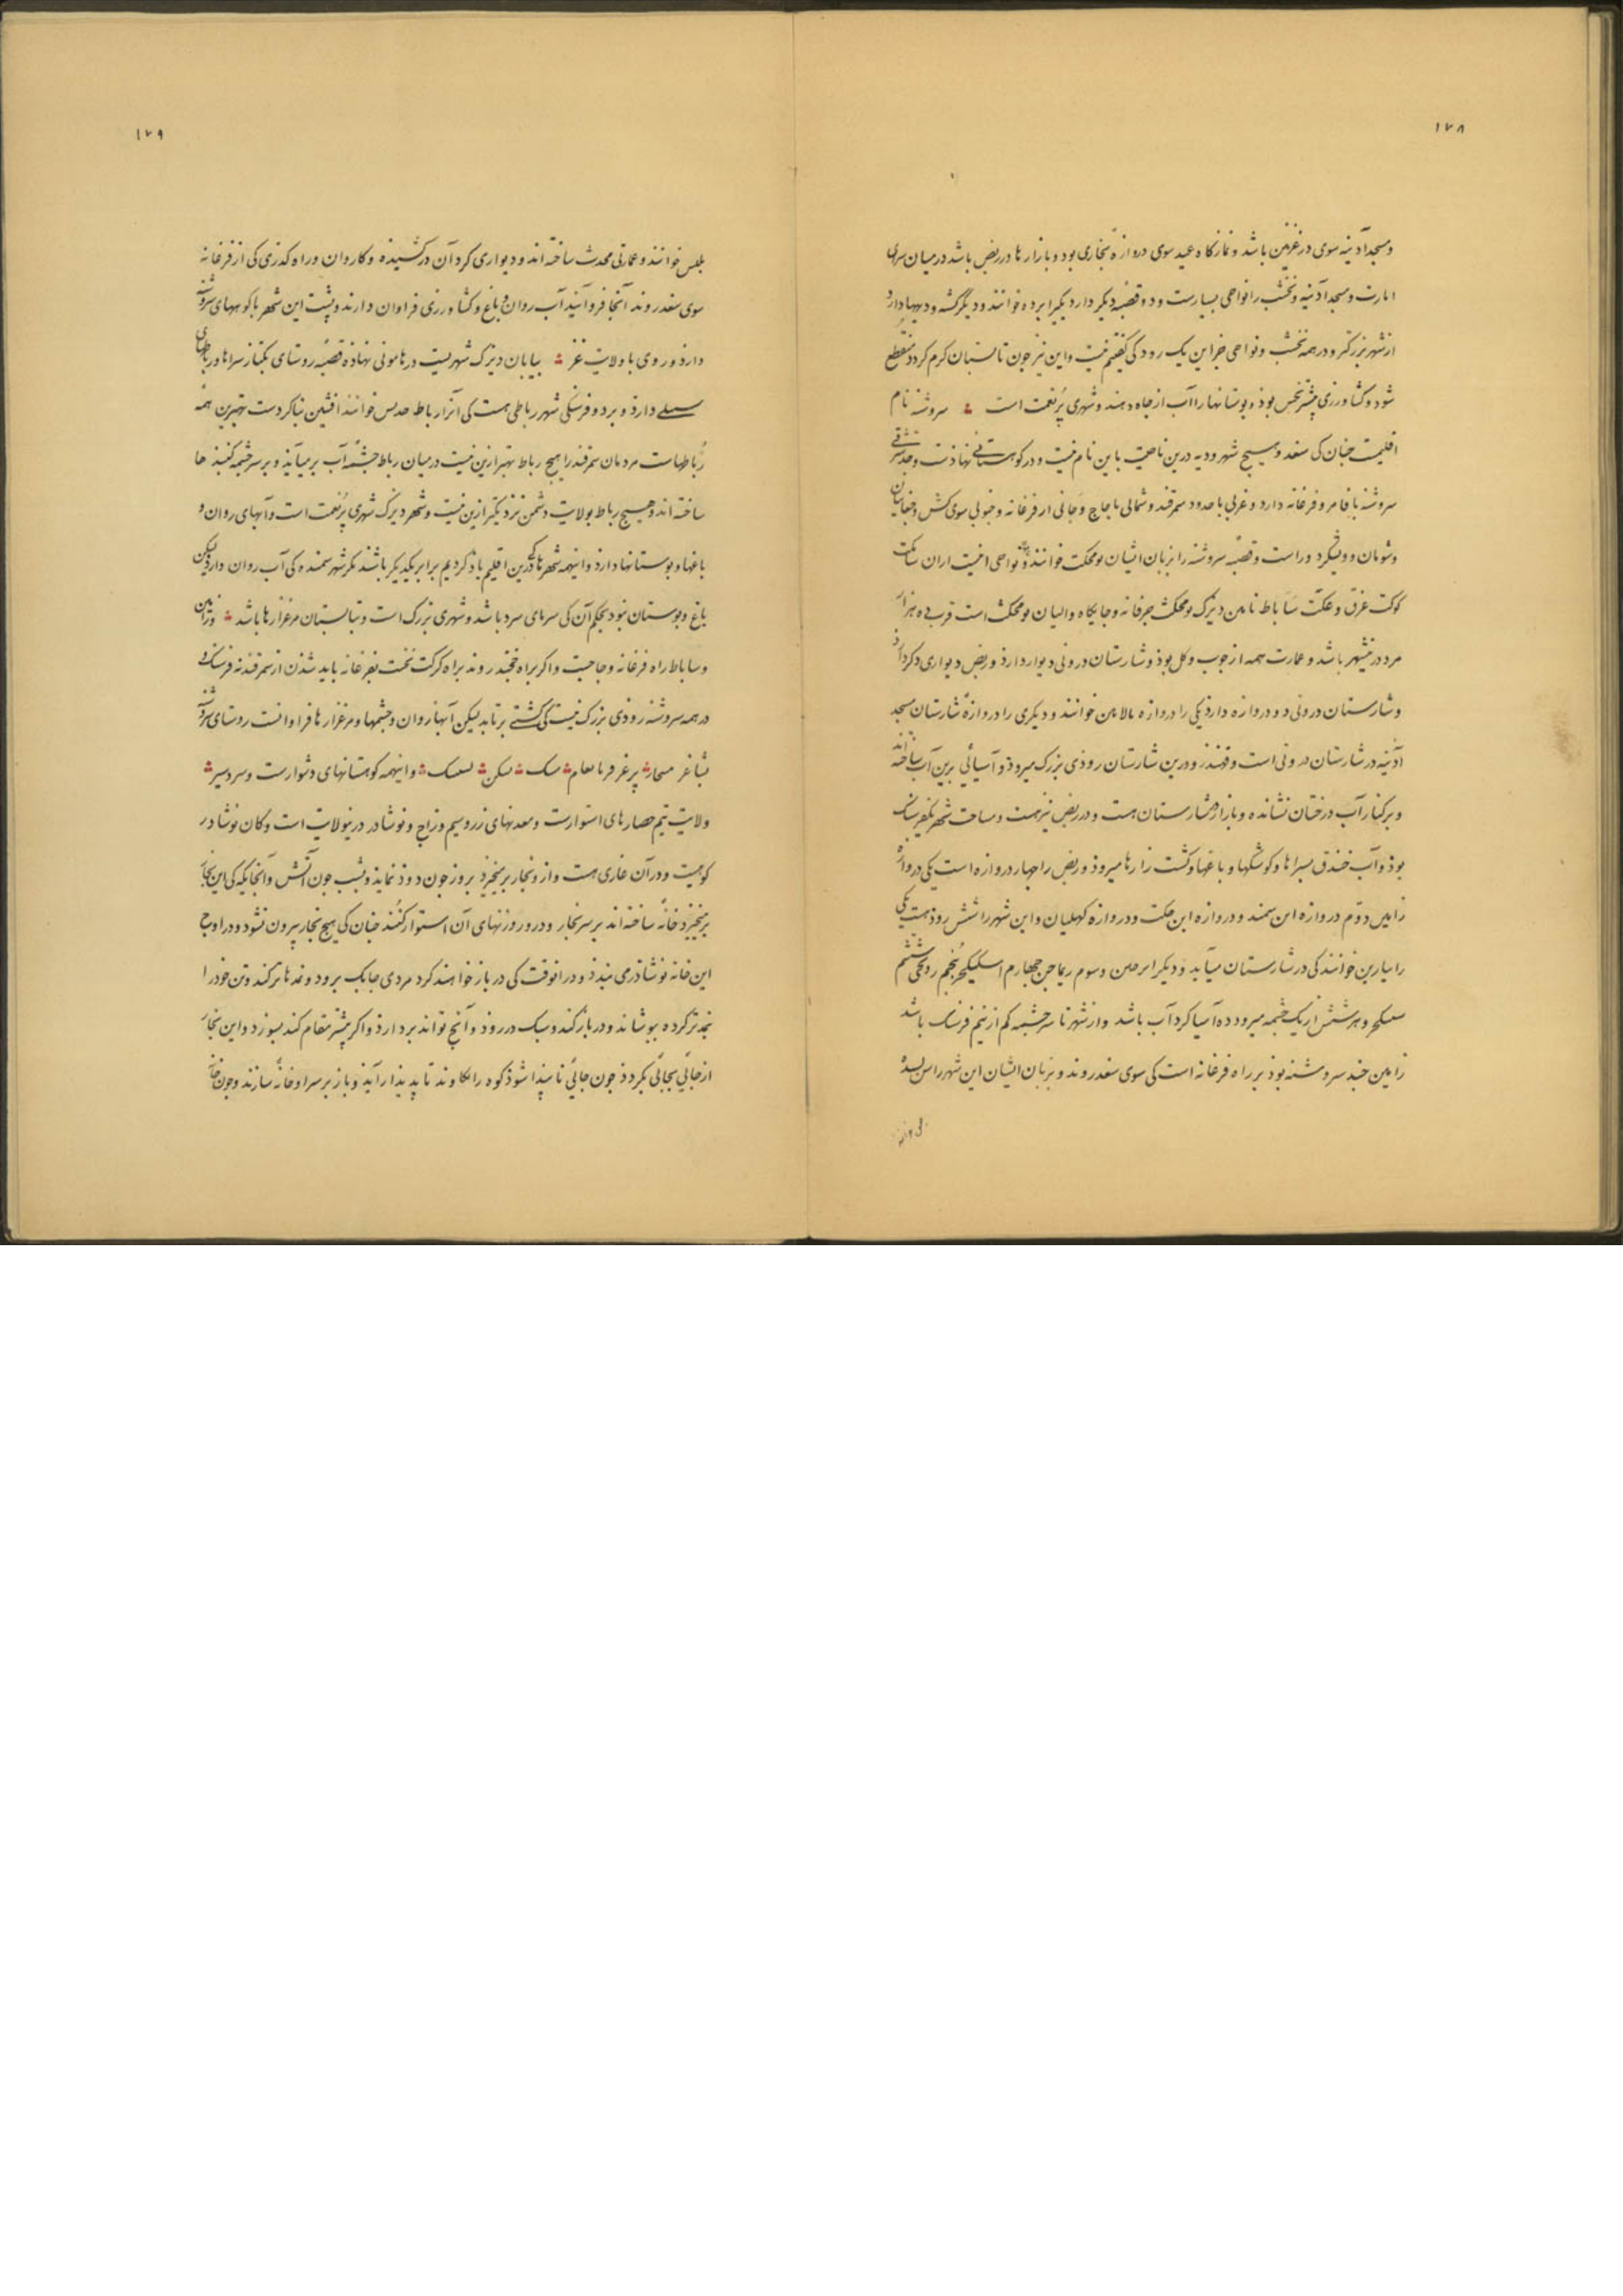 ۱۷۸
و مسجد آدینه سوی در غزنین باشد و نمازکاه عید سوی دروازهٔ بخاری بود و بازارها در ربض باشد در میان سرای
امارت و مسجد آدینه و نخشب را نواحی بسیارست و دو قصبهٔ دیکر دارد یکیرا بزده خوانند و دیکر کسه و دیهها دارد
از شهر بزرکتر و در همه نخشب و نواحی جز این یک رود کی کفتیم نیست و این نیز جون تابستان کرم کردد منقطع
شود و کشاورزی بیشتر نخس بوذ و بوستانها را آب از جاه دهند و شهری پرنعمت است سروشنه نام
اقلیمست جنان کی سغد و هیچ شهر و دیه درین ناحیت باین نام نیست و در کوهستانی نهادست و حد شرقی
سروشنه با فامر و فرغانه دارد و غربی با حدود سمرقند و شمالی با جاج و جانی از فرغانه و جنوبی سوی کش و جغانیان
و شومان و ویشکرد و راست و قصبهٔ سروشنه را بزبان ایشان بومحکت خوانند و نواحی اینست اران ساکت
کوکت غرق و عکت ساباط زامین دیزک بومحکث خرقانه و جایکاه والیان بومحکث است قرب ده هزار
مرد درین شهر باشد و عمارت همه از جوب و کل بوذ و شارستان درونی دیوار دارذ و ربض دیواری دکر دارذ
و شارستان درونی دو دروازه دارذ یکی را دروازه بالا من خوانند و دیکری را دروازهٔ شارستان مسجد
آذینه در شارستان درونی است و قهندز و درین شارستان روذی بزرک میروذ و آسیائی برین آب ساخته اند
و بر کنار آب درختان نشانده و بازار در شارستان هست و در ربض نیز هست و مساحت شهر یکفرسنک
بوذ و آب خندق بسراها و کوشکها و باغها و کشت زارها میروذ و ربض را جهار دروازه است یکی دروازهٔ
زامین دوّم دروازه ابن سمند و دروازه ابن حکت و دروازه کهلیان و این شهر را شش روذ هست یکی
را سارین خوانند کی در شارستان میآید و دیکر ابرحلن و سوم ریماجن جهارم اسکیکجر پنجم رویجی ششم
سمکجر و هر شش از یک جشمه میرود ده آسیا کرد آب باشد و از شهر تا سرجشمه کم از نیم فرسنک باشد
زامین جند سروشنه بوذ بر راه فرغانه است کی سوی سغد روند و بزبان ایشان این شهر را سرسنده
۱۷۹
بلس خوانند و عمارتی محدث ساخته اند و دیواری کرد آن درکشیذه و کاروان و راه کذری کی از فرغانه
سوی سغد روند آنجا فروآیند آب روان و باغ و کشاورزی فراوان دارند و پشت این شهر با کوههای سروشنه
دارذ و روی با ولایت غز بیابان دیزک شهریست در هامونی نهاذه قصبهٔ روستای بکنار سراها و رباطهای
سبیلی دارذ و بر دو فرسنکی شهر رباطی هست کی آنرا رباط حدیس خوانند افشین بنا کردست بهترین همه
رباطهاست مردمان سمرقند را هیچ رباط بهتر ازین نیست در میان رباط جشمهٔ آب برمیآید و بر سر جشمه کنبذها
ساخته اند و هیچ رباط بولایت دشمن نزدیکتر ازین نیست و شهر دیزک شهری پرنعمت است و آبهای روان و
باغها و بوستانها دارذ و اینهمه شهرها کی درین اقلیم یاذ کردیم برابر یکدیکر باشند مکر شهر سمنده کی آب روان دارذ لیکن
باغ و بوستان نبود بحکم آن کی سرمای سرد باشد و شهری بزرک است و تابستان مرغزارها باشد و زامین
و ساباط راه فرغانه و جاجست و اکر براه خجند روند براه کرکت نخست بفرغانه باید شذن از سمرقند نه فرسنک و
در همه سروشنه روذی بزرک نیست کی کشتی برتابد لیکن آبها روان و جشمها و مرغزارها فراوانست روستای سروشنه
بشاغر مسحا برغر فرغر بانعام مسک بسکن بسسک و اینهمه کوهستانهای دشوارست و سردسیر
ولایت بتّم حصارهای استوارست و معدنهای زر و سیم و زاج و نوشادر درین ولایت است و کان نوشادر
کوهیست و در آن غاری هست و از و بخار برمیخیزذ بروز جون دوذ نمایذ و بشب جون آتش و آنجایکه کی این بخار
برمیخیزذ خانهٔ ساخته اند بر سر بخار و در و روزنهای آن استوار کنند جنان کی هیچ بخار بیرون نشود و در اوج
این خانه نوشاذری بندذ و در آنوقت کی در باز خواهند کرد مردی جابک برود و نمدها تر کند و تن خود را
بنمد تر کرده بپوشاند و در باز کند و سبک در رود و آنج تواند بردارذ و اکر بیشتر مقام کند بسوزد و این بخار
از جائی بجائی بکردذ جون جائی ناپیدا شوذ کوه را بکاوند تا پدیذار آیذ و باز بر سر او خانهٔ سازند و جون خانه